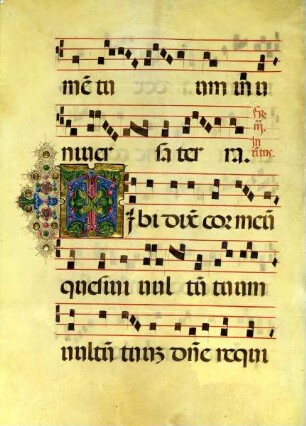 mē tu um in u
niuer sa ter ra.
Tibi dixit cor meū
quesiui uul tū tuum
uultū tuuʒ dn̄e requi